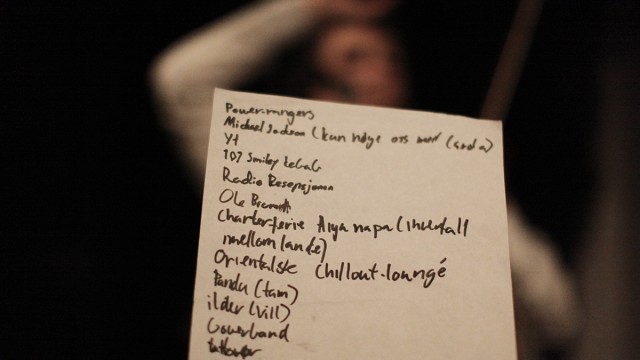 Power-rangers
Michael Jackson (kan nøye oss med
Y1
107 Smiley kebab
Radio Resepsjonen
Ole
Charterferie Aiya napa (innefall
mellom landte)
Orientalsk Chillout-loungé
Panda (tam)
ilder (vill)
Coverband